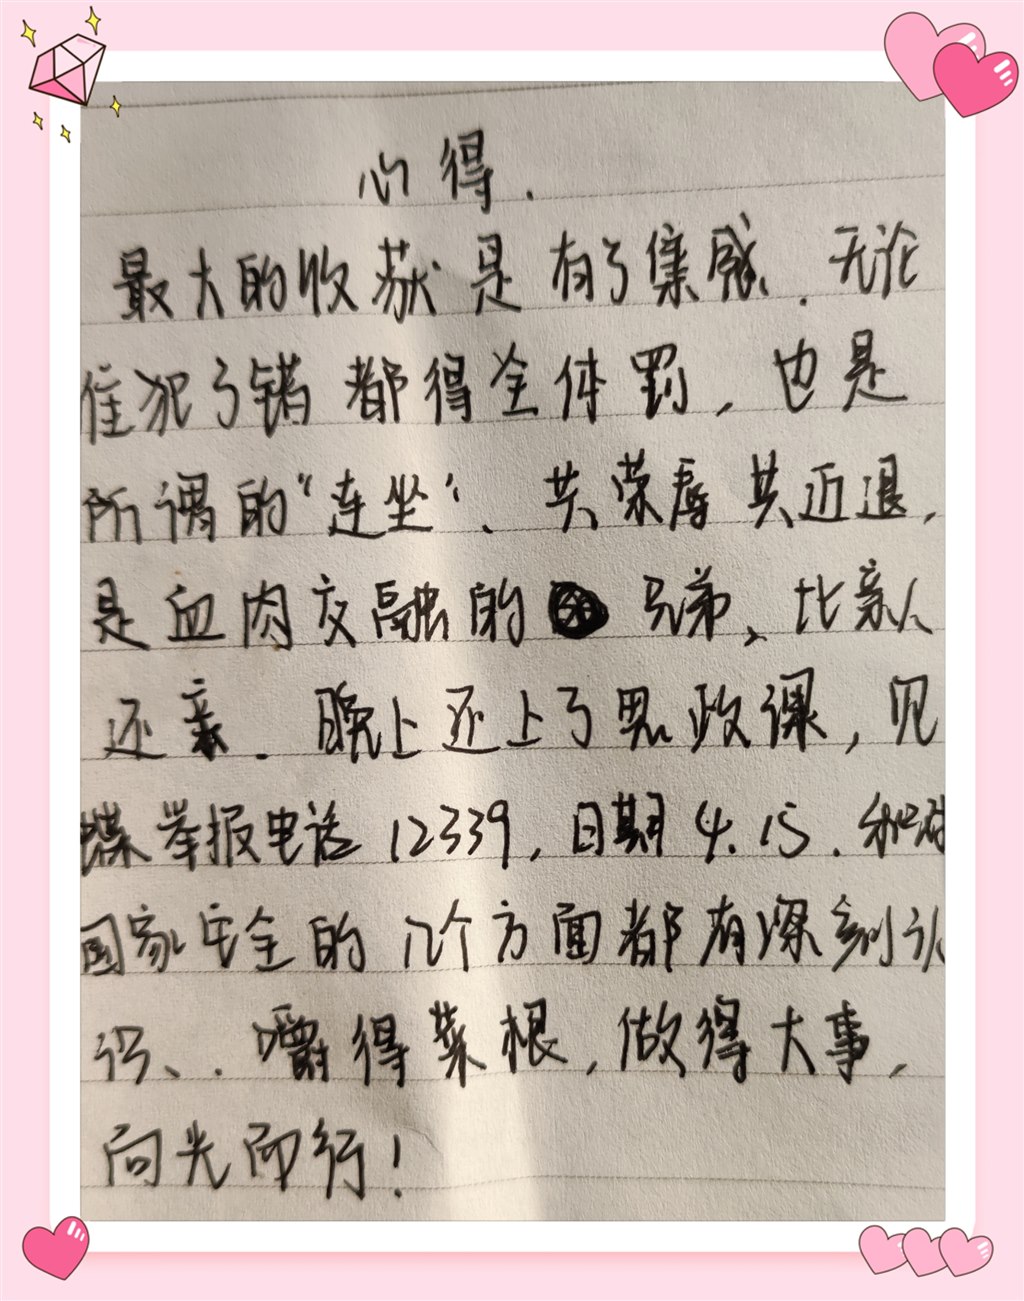 心得.
最大的收获是有了集感.无论
谁犯了错都得全体罚,也是
所谓的“连坐”、共荣辱共近退,
是血肉交融的兄弟、比亲人
还亲.晚上还上了思政课,见
蝶举报电话12339,日期4.15.和对
国家安全的几个方面都有深刻认
识、.嚼得菜根,做得大事,
向光而行!